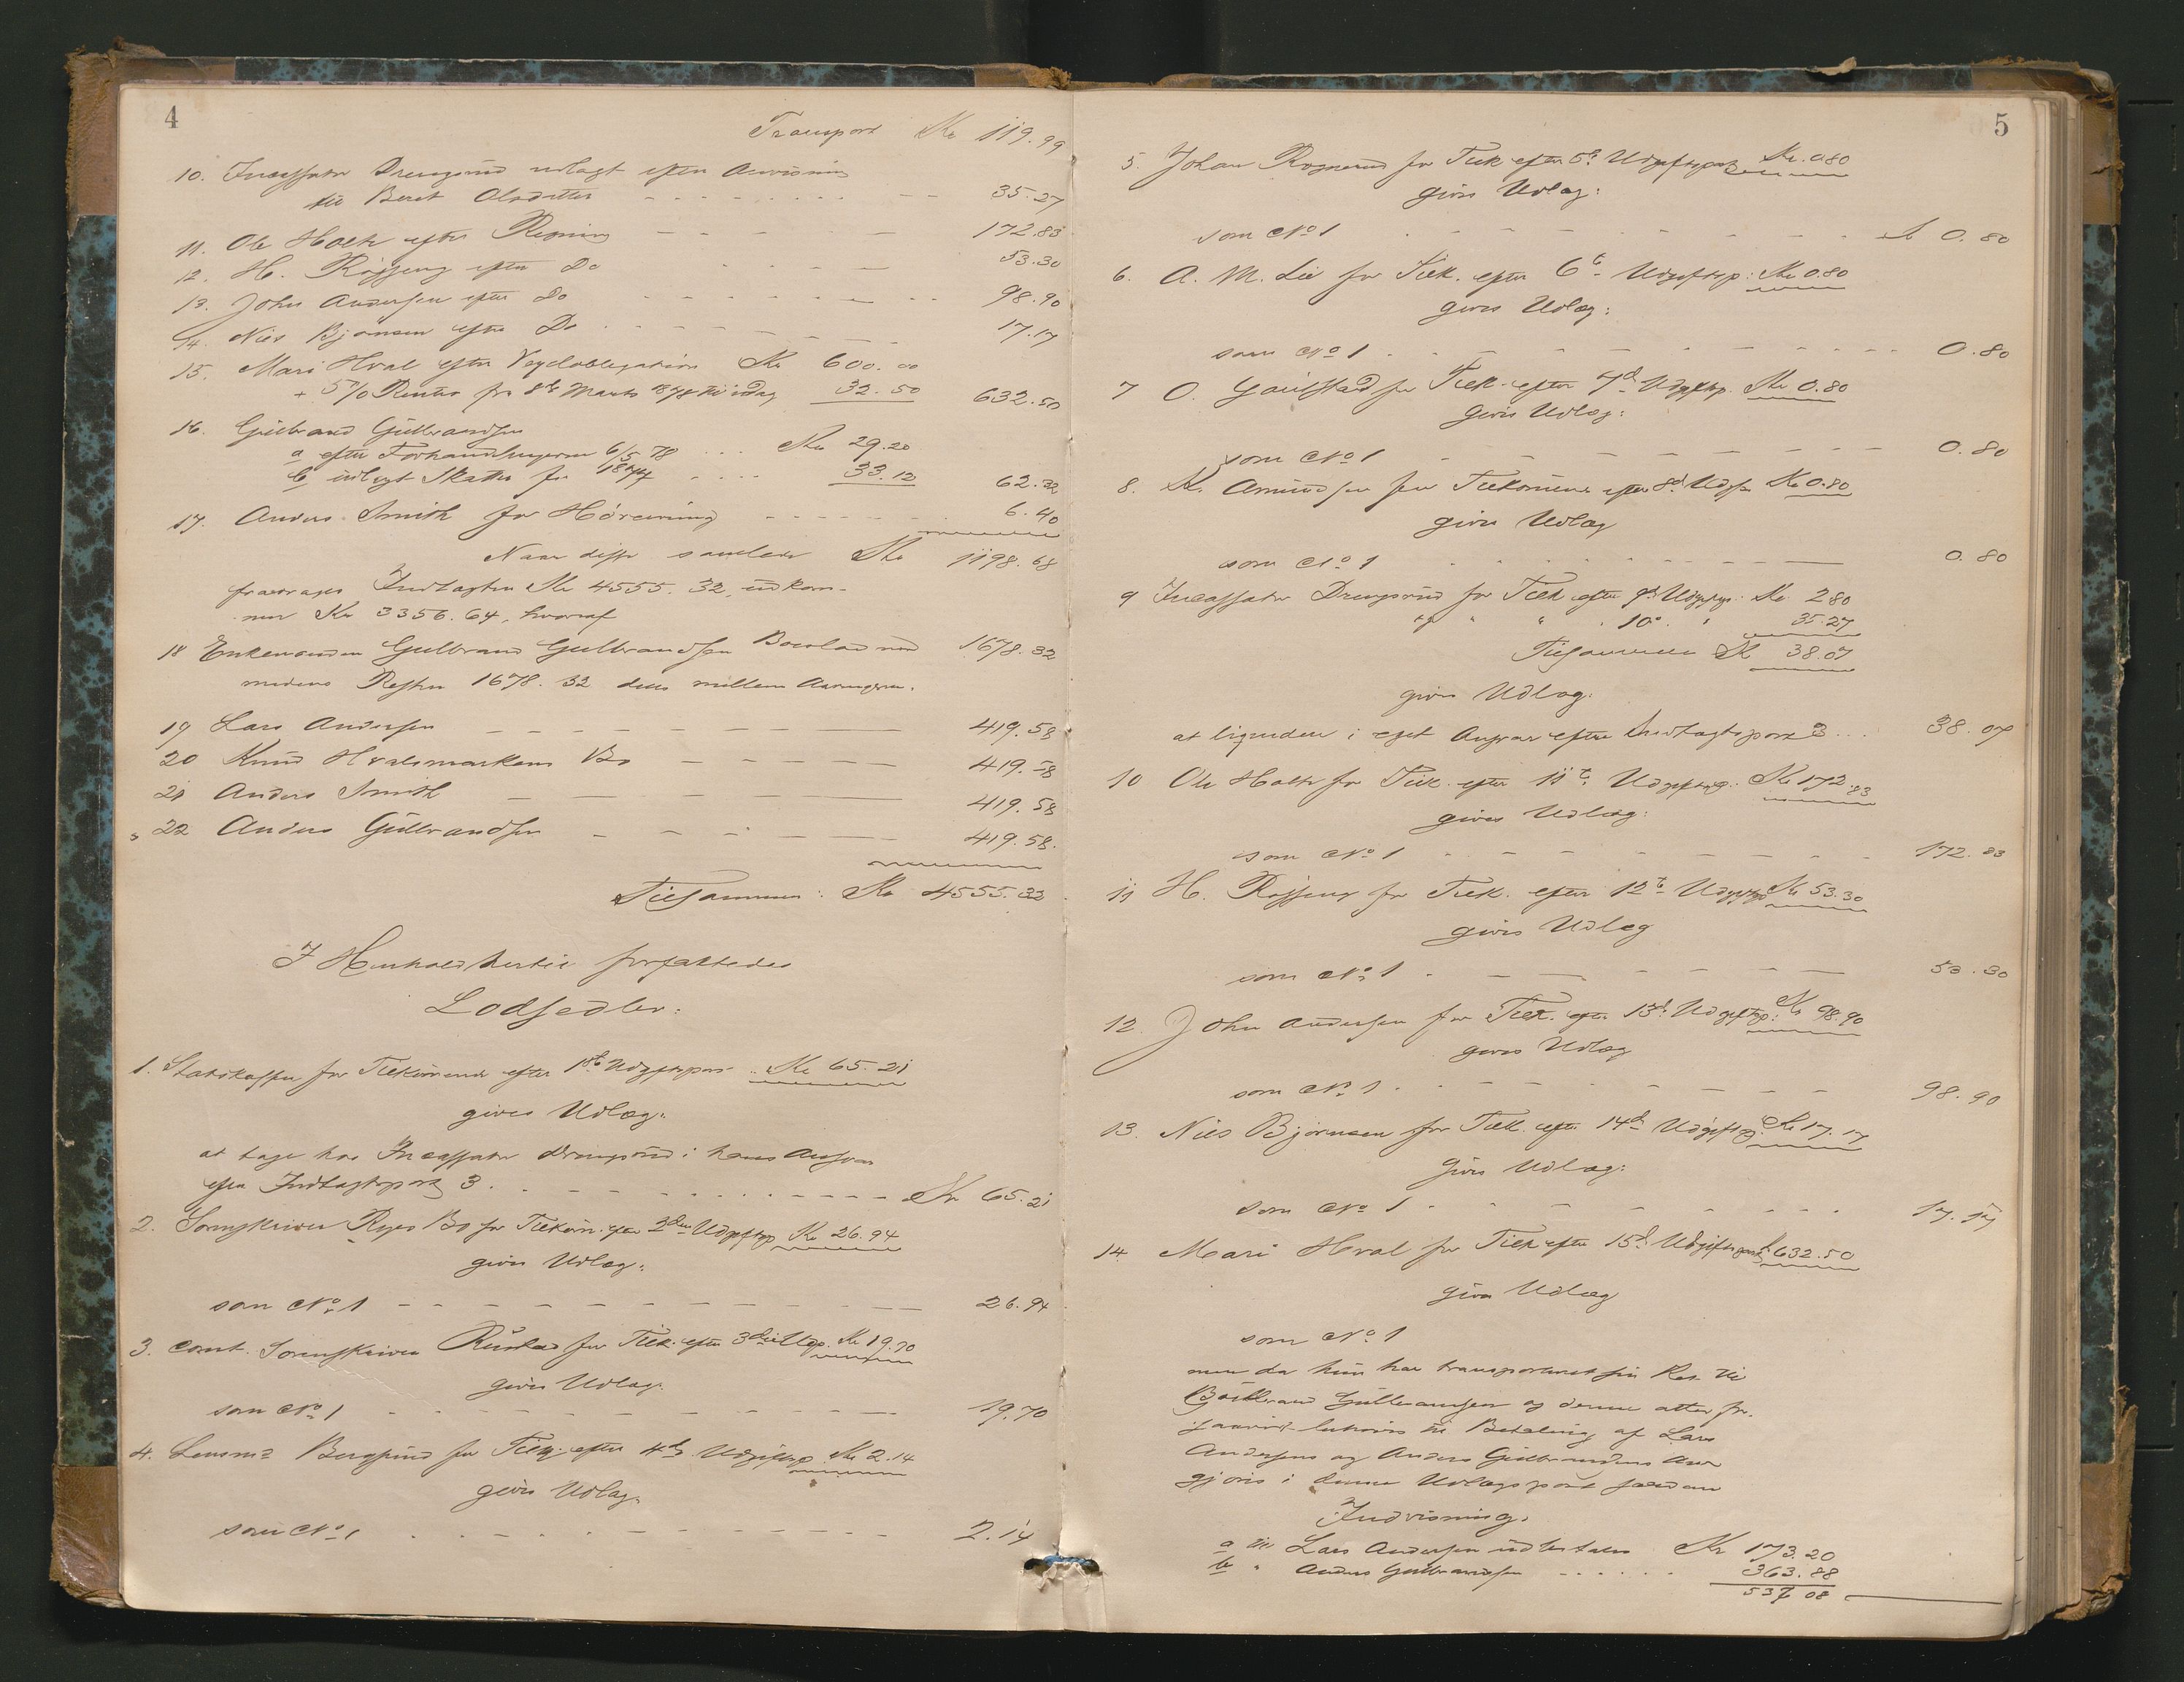 4
Transport Kr 119.99
10. Incassator Drengsrud udlagt efter Anvisning
til Berit Olsdatter 35.27
11. Ole Holte efter Regning 172.83
12. H. Røssjeng efter Do 53.30
13. John Andersen efter Do 98.90
14. Niels Bjørnsen efter Do 17.17
15. Mari Hval efter Vexelobligation Kr 600.00
+ 5% Renter fra 8de Marts 1878 til idag 32.50 632.50
16. Gulbrand Gulbrandsen
a efter Forhandlingerne 6/5 78 Kr 29.20
b udlagt Skatter for 1877 33.12 62.32
17. Anders Smith for Høravning 6.40
Naar disse samlede Kr 1198.68
fradrages Indtægten Kr 4555.32, udkom-
mer Kr 3356.64, hvoraf
18 Enkemanden Gulbrand Gulbrandsen Boeslod med 1678.32
medens Resten 1678.32 deles mellem Arvingerne.
19 Lars Andersen 419.58
20 Knud Hvalsmarkens Bo 419.58
21 Anders Smith 419.58
22 Anders Gulbrandsen 419.58.
Tilsammen: Kr 4555.32
I Henhold hertil forfattedes
Lodsedler:
1. Statskassen for Tilkommende efter 1ste Udgiftspost Kr 65.21
gives Udlæg:
at tage hos Incassator Drengsrud i hans Ansvar
efter Indtægtspost 3. Kr 65.21
2. Sorenskriver Ryes Bo for Tilkom. efter 2den Udgiftsp. Kr 26.94
gives Udlæg:
som No 1 26.94
3. Const. Sorenskriver Rustad for Tilk. efter 3die Udgp. Kr 19.70
gives Udlæg.
som No 1 19.70
4. Lensmd Bergsrud for Tilk. efter 4de Udgiftsp. Kr 2.14
gives Udlæg.
som No 1 2.14
5
5. Johan Rognerud for Tilk efter 5te Udgiftspost Kr. 0.80
gives Udlæg:
som No 1 0.80
6. A. M. Lie for Tilk. efter 6te Udgiftsp: Kr 0.80
gives Udlæg:
som No 1 0.80
7 O. Gaulstad for Tilk. efter 7de Udgiftsp. Kr 0.80
gives Udlæg:
som No 1 0.80
8. K. Amundsen for Tilkommende efter 8de Udgp Kr 0.80
gives Udlæg
som No 1 0.80
9 Incassator Drengsrud for Tilk efter 9de Udgiftsp. Kr 2.80
og " " 10de " 35.27
Tilsammen Kr 38.07
gives Udlæg:
at liquidere i eget Ansvar efter Indtægtspost 3 38.07
10 Ole Holte for Tilk. efter 11te Udgiftsp. Kr 172.83
gives Udlæg:
som No 1 172.83
11 H. Røssjeng for Tilk. efter 12te Udgiftsp Kr 53.30
gives Udlæg
som No 1 53.30
12. John Andersen for Tilk. efter 13de Udgiftsp: Kr 98.90
gives Udlæg
som No 1 98.90
13. Niels Bjørnsen for Tilk. efter 14de Udgiftsp. Kr 17.17
gives Udlæg:
som No 1 17.17
14. Mari Hval for Tilk efter 15de Udgiftspost Kr 632.50
gives Udlæg
som No 1
men da hun har transporteret sin Ret til
Gulbrand Gulbrandsen og denne atter for-
saavidt behøves til Betaling af Lars
Andersens og Anders Gulbrandsens Arv
gjøres i denne Udlægspost saadan
Indvisning.
a til Lars Andersen udbetales Kr 173.20
b " Anders Gulbrandsen 363.88
537 08